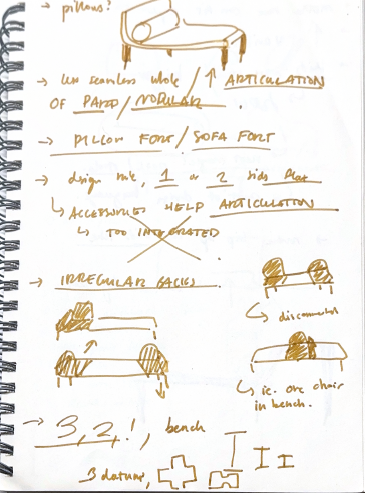 → pillows?
→ less seamless whole / ↑ ARTICULATION
OF PARTS / MODULAR.
→ PILLOW FORT / SOFA FORT
→ design rule, 1 or 2 sides flat
↳ ACCESSORIES HELP ARTICULATION
↳ TOO INTEGRATED
→ IRREGULAR BACKS.
↳ disconnected
↳ ie. one chair
in bench.
→ 3, 2, 1!, bench
3 datums,